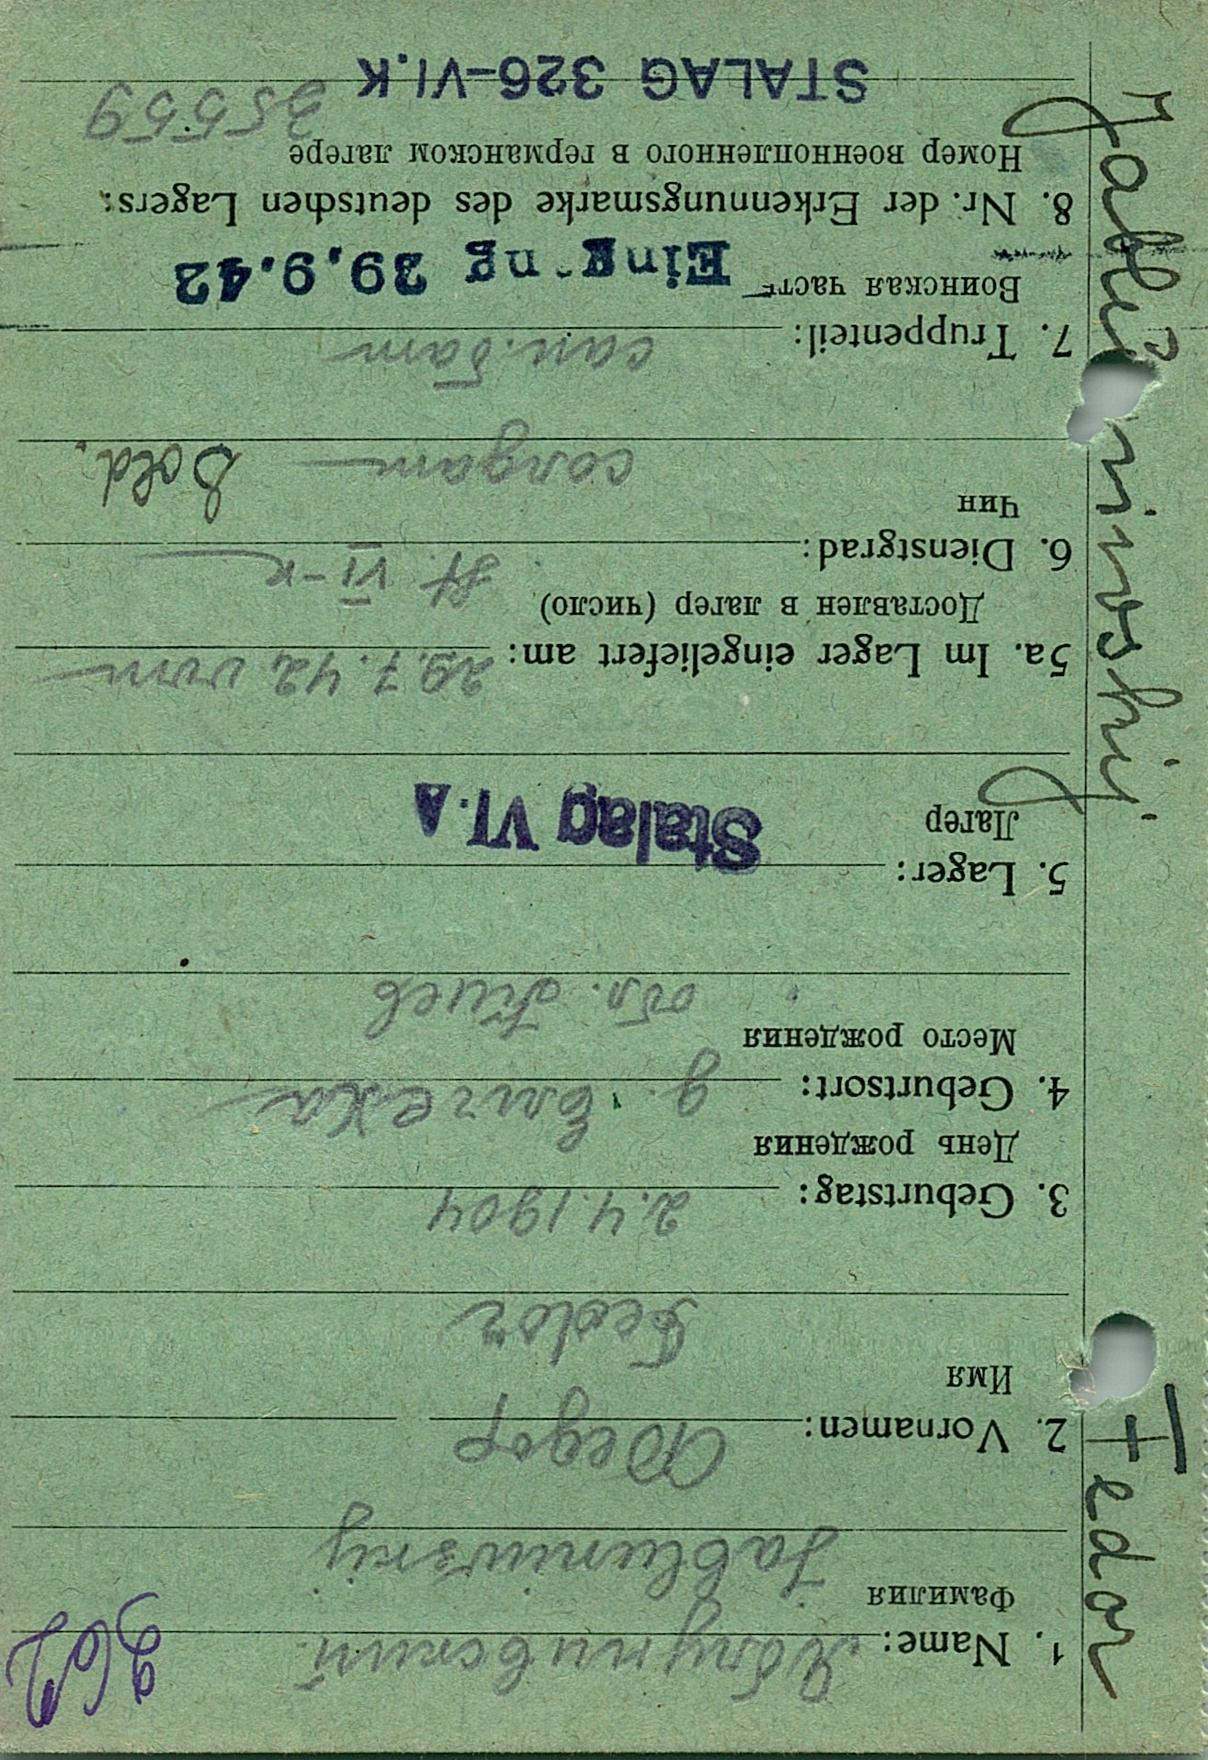 962
1. Name: Яблунивский
Фамилия
Jabluniwskij
2. Vornamen: Федор
Имя
Fedor
3. Geburtstag: 2.4.1904
День рождения
4. Geburtsort: д.
Место рождения
обл. Киев
5. Lager: Stalag VI.A
Лагерь
5a. Im Lager eingeliefert am: 29.7.42 vom
Доставлен в лагерь (число)
St VI-K
6. Dienstgrad:
Чин
солдат Sold.
7. Truppenteil: сан. бат
Воинская часть
Eing ng 29.9.42
8. Nr. der Erkennungsmarke des deutschen Lagers:
Номер военнопленного в германском лагере
35559
STALAG 326-VI.K
Fedor Jabluniwskij